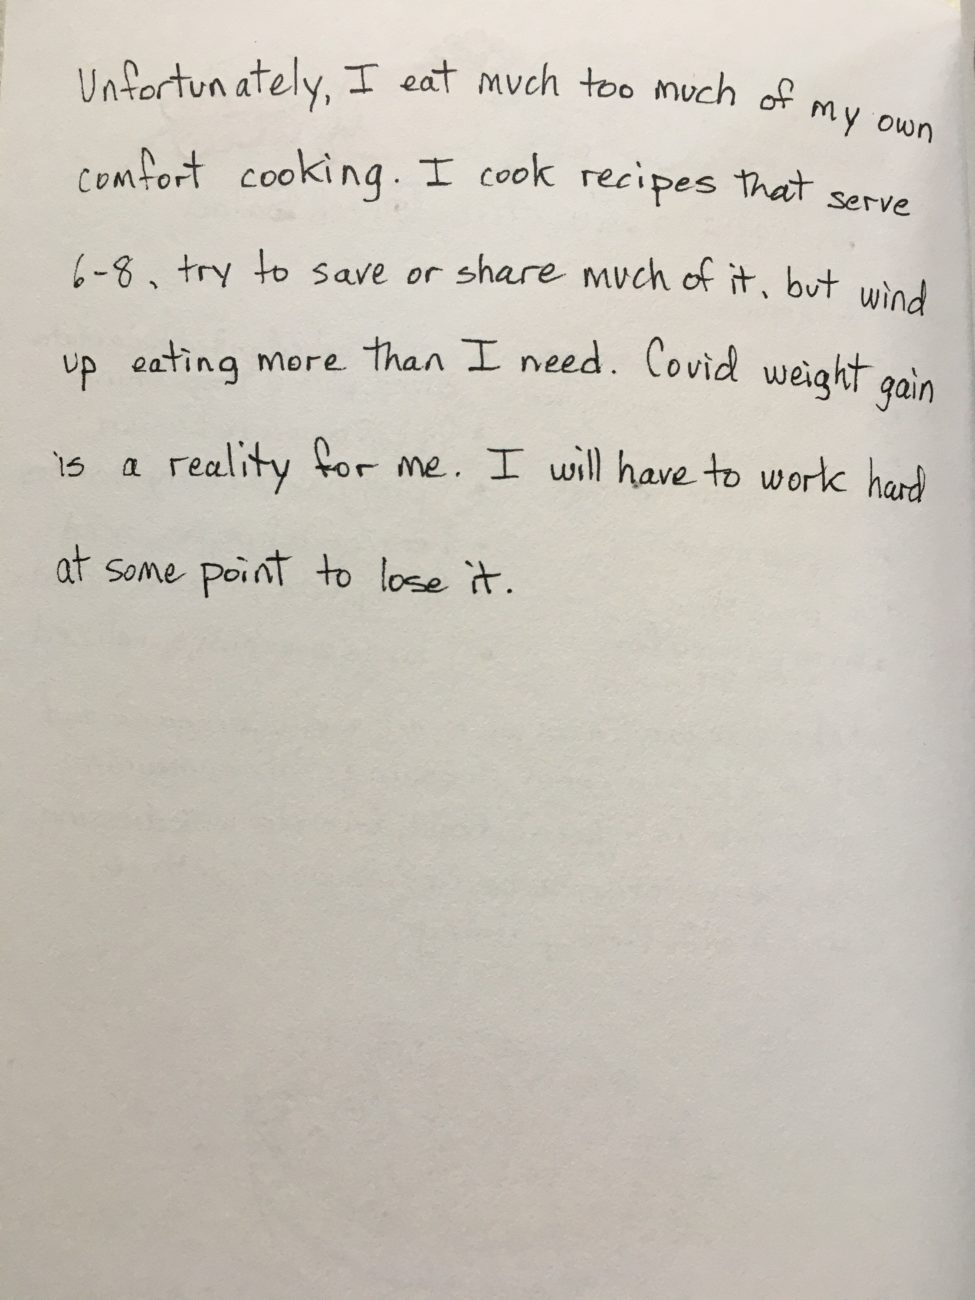 Unfortunately, I eat much too much of my own
comfort cooking. I cook recipes that serve
6-8, try to save or share much of it, but wind
up eating more than I need. Covid weight gain
is a reality for me. I will have to work hard
at some point to lose it.